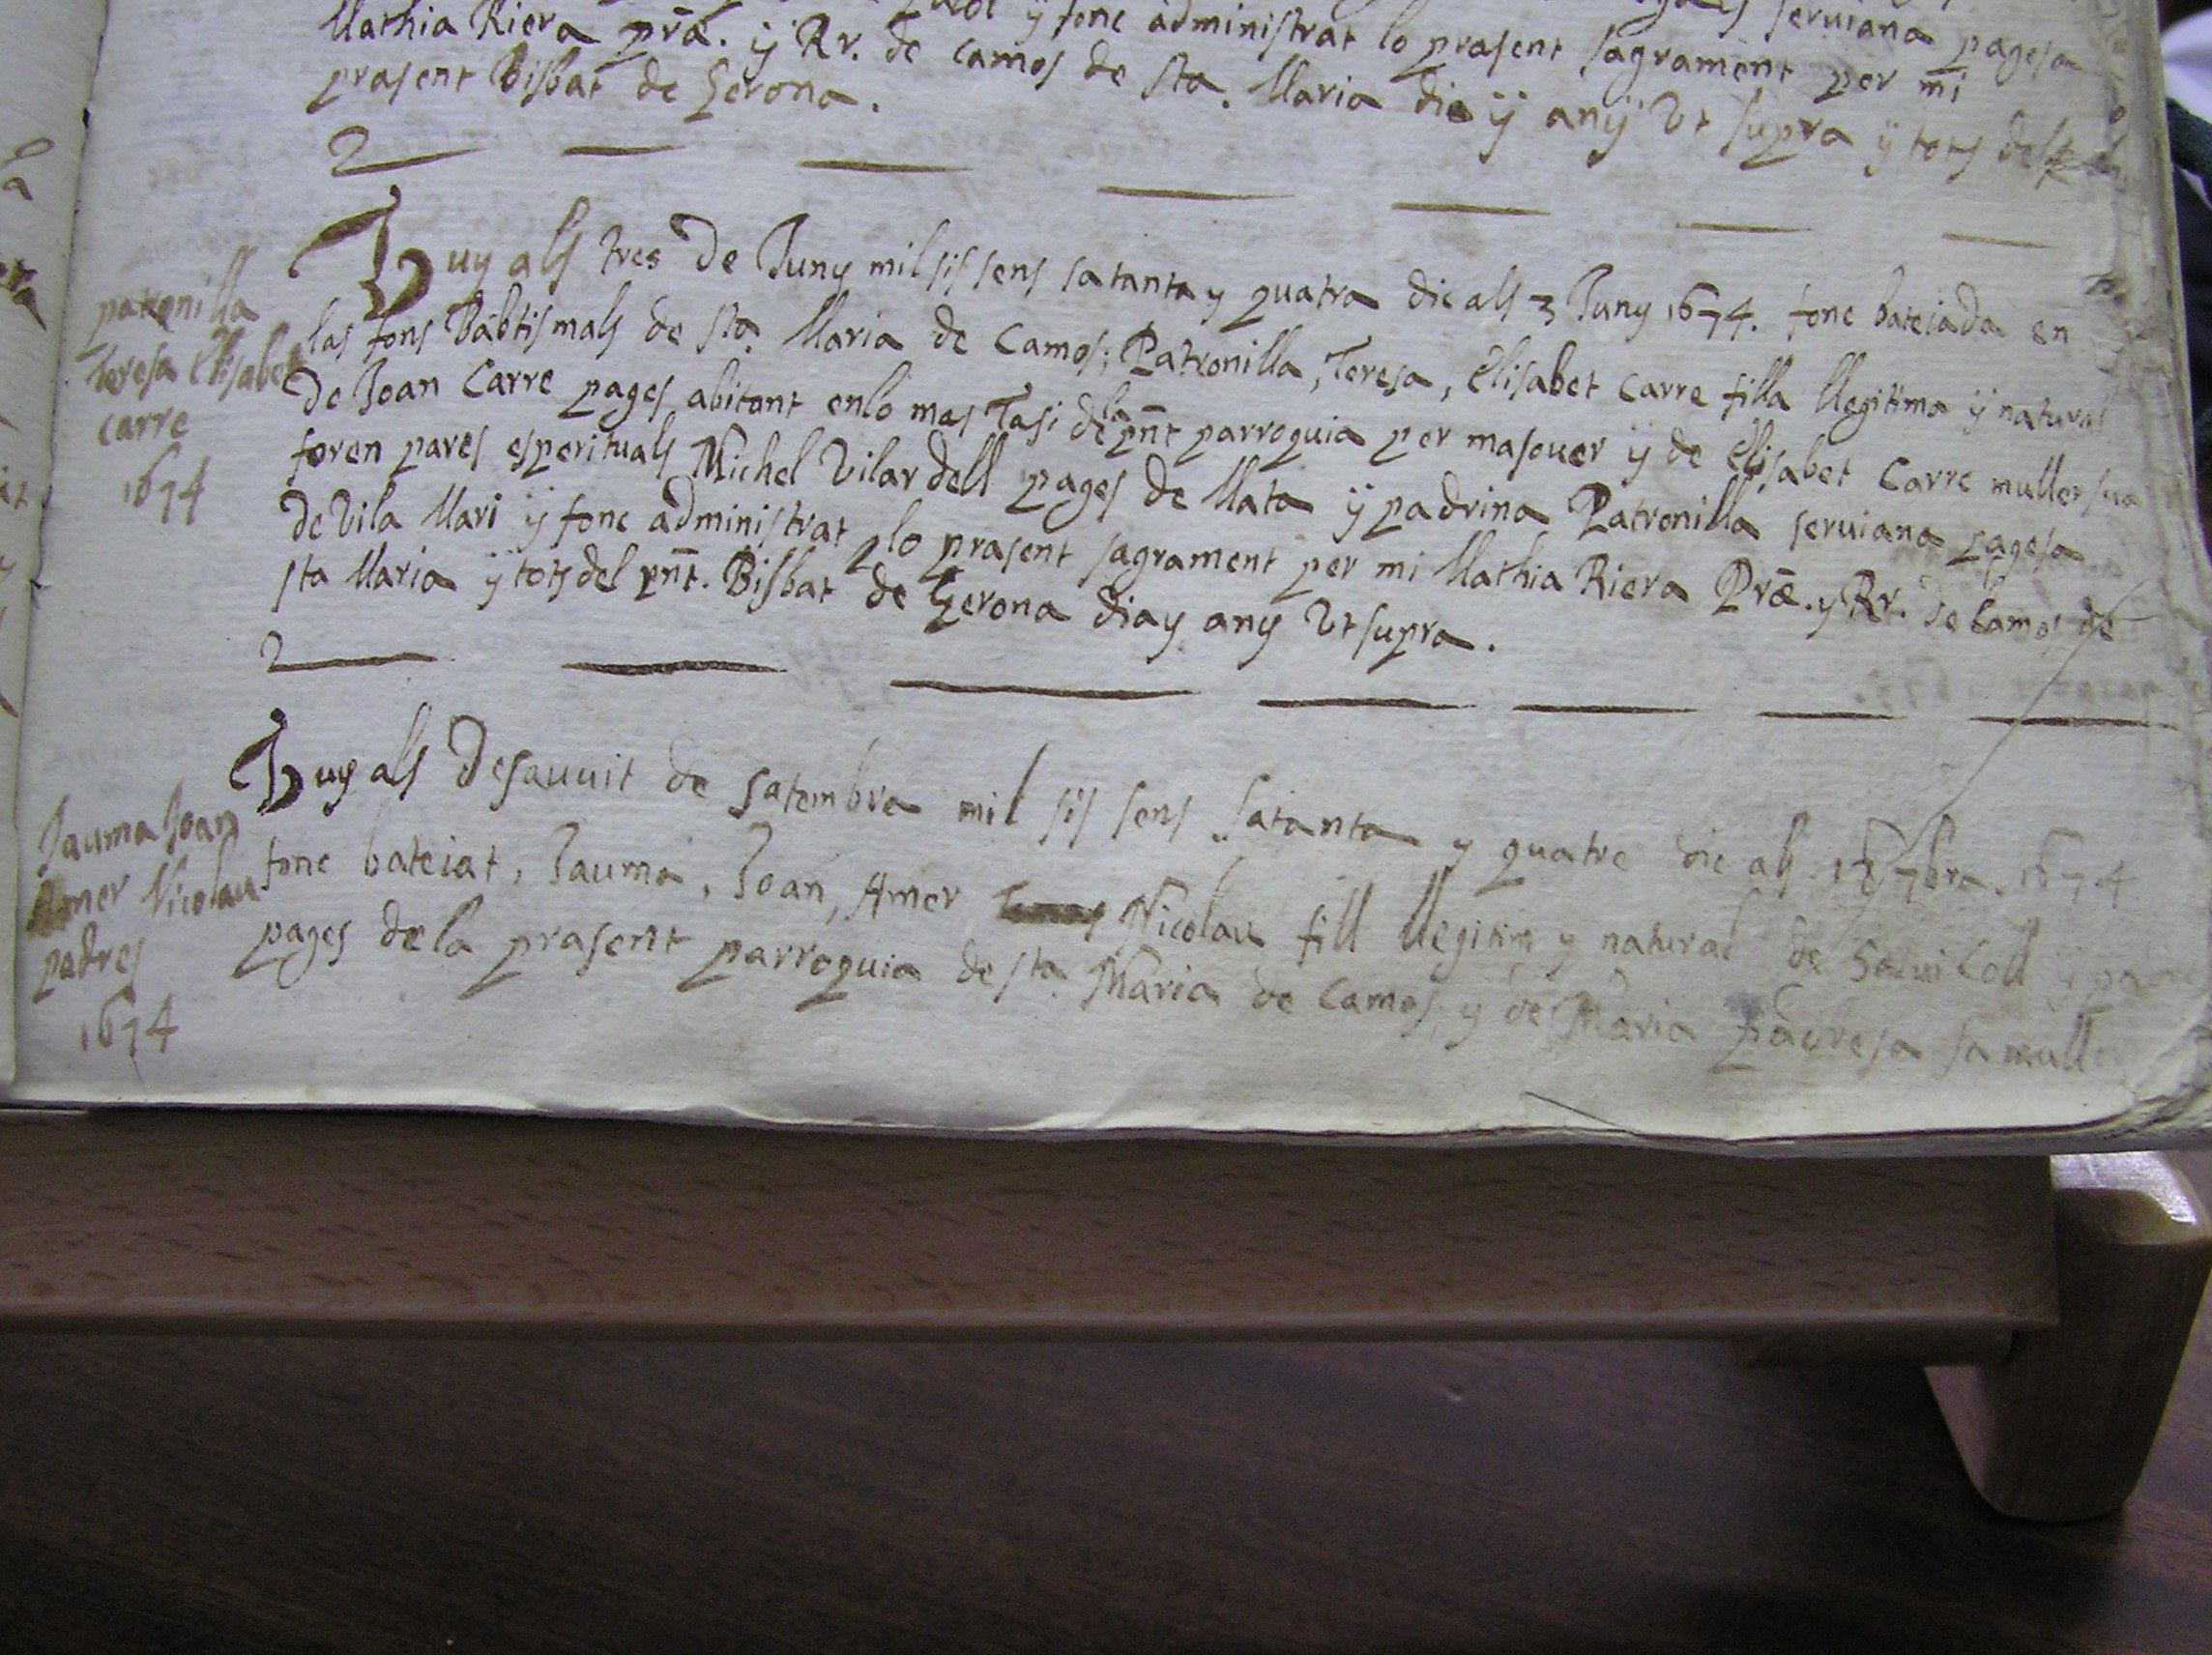 seruiana pagesa
ÿ fonc administrat lo prasent sagrament per mi
Mathia Riera prã. ÿ Rr. de Camos de sta. Maria die ÿ anÿ Vt supra ÿ tots del
prasent Bisbat de Gerona.
patronilla
teresa Elisabet
carre
1674
Huy als tres de Juny mil sissens satanta y quatra dic als 3 Juny 1674. fonc bateiada en
las fons Babtismals de sta. Maria de Camos; Patronilla, Teresa, Elisabet Carre filla llegitima ÿ natural
de Joan Carre pages abitant enlo mas Tasi dela pñt parroquia per masouer ÿ de Elisabet Carre muller sua
foren pares esperituals Michel Vilardell pages de Mata ÿ padrina Patronilla seruiana pagesa
de Vila Mari ÿ fonc administrat lo prasent sagrament per mi Mathia Riera Prã. y Rr. de Camos de
sta Maria ÿ tots del pñt. Bisbat de Gerona dia y any Vt supra.
Jauma Joan
Amer Nicolau
padres
1674
Huy als Desauuit de satembra mil sis sens satanta y quatre dic als 18 7bra. 1674
fonc bateiat, Jauma, Joan, Amer Nicolau fill llegitim y natural de Saluí Coll y
pages dela prasent parroquia de sta. Maria de Camos, y de Maria padresa sa mull